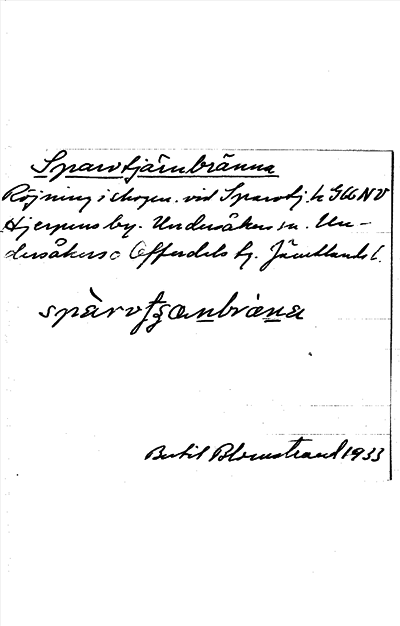 Sparvtjärnbränna
Röjning i skogen. vid Sparvtj. NV
Hjerpens by. Undersåkers sn. Un-
dersåkers o Offerdals tg. Jämtlands l.
Bertil Blomstrand 1933